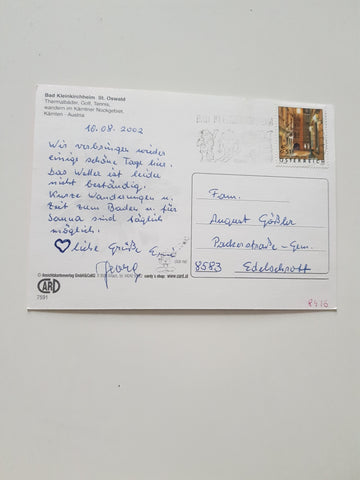 Bad Kleinkirchheim St. Oswald
Thermalbäder, Golf, Tennis,
wandern im Kärntner Nockgebiet.
Kärnten - Austria
10.08.2002
Wir verbringen wieder
einige schöne Tage hier.
Das Wetter ist leider
nicht beständig.
Kurze Wanderungen u.
Zeit zum Baden u. für
Sauna sind täglich
möglich.
Liebe Grüße
Georg
BAD KLEINKIRCHHEIM
ÖSTERREICH
Fam.
August Gößler
Packerstraße - Gem.
8583 Edelschrott
CARD
7591
www.card.at